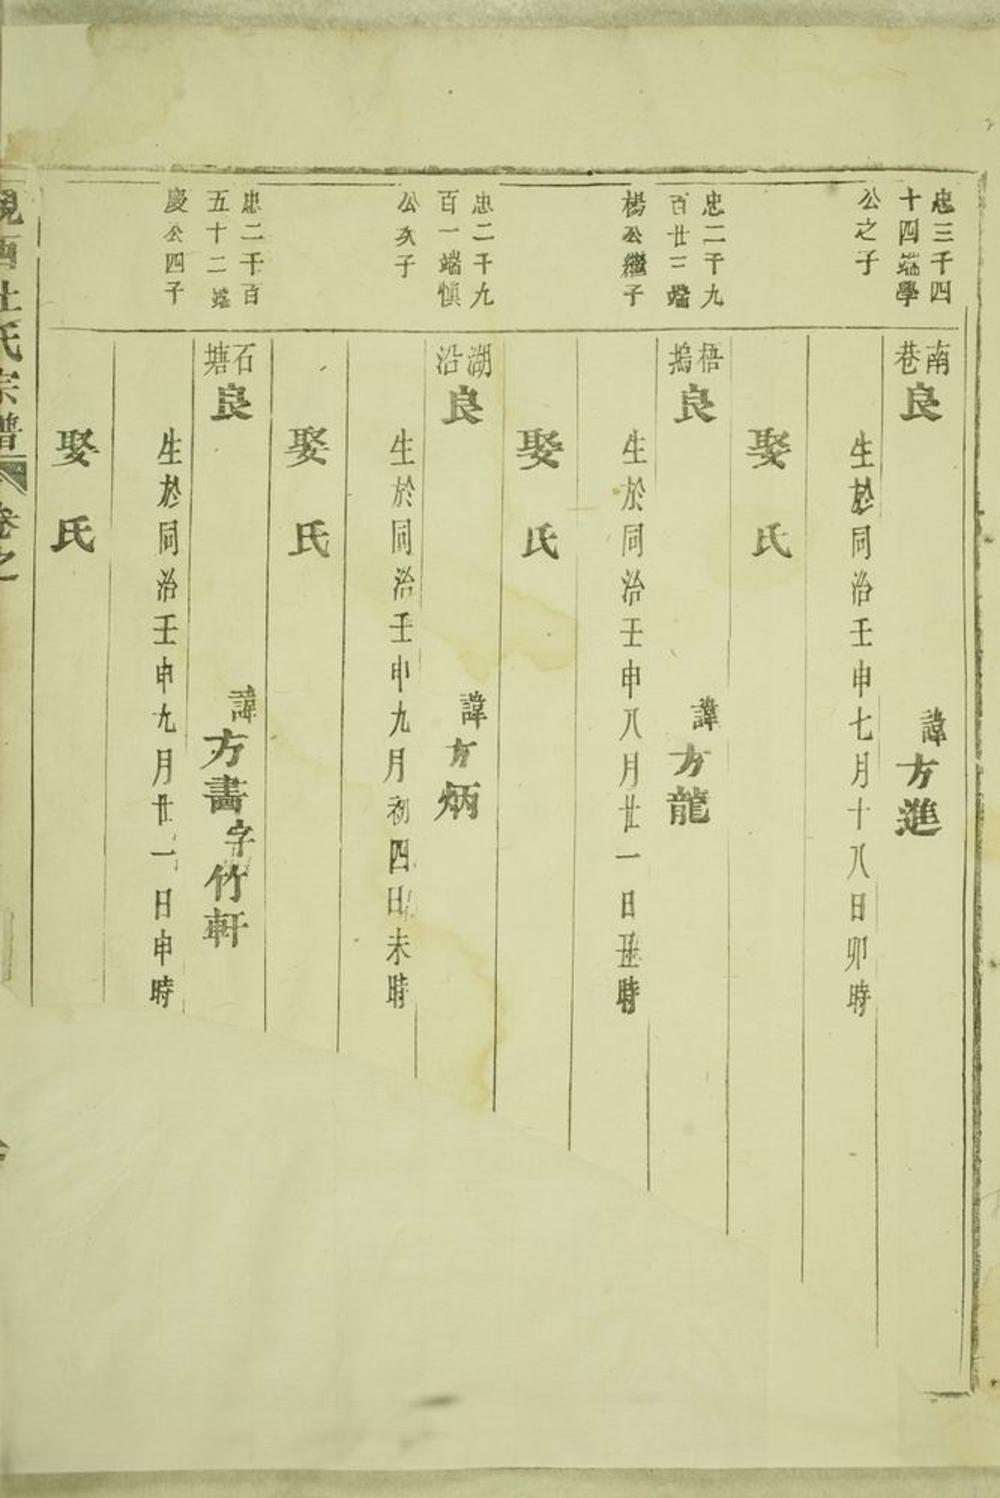 忠三千四
十四端學
公之子
南巷
良
諱方進
生於同治壬申七月十八日卯時
娶 氏
忠二千九
百廿三端
楊公繼子
梧塢
良
諱方龍
生於同治壬申八月廿一日丑時
娶 氏
忠二千九
百一端慎
公次子
湖沿
良
諱方炳
生於同治壬申九月初四日未時
娶 氏
忠二千百
五十二端
慶公四子
石塘
良
諱方畵字竹軒
生於同治壬申九月廿一日申時
娶 氏
杜氏宗譜 卷之